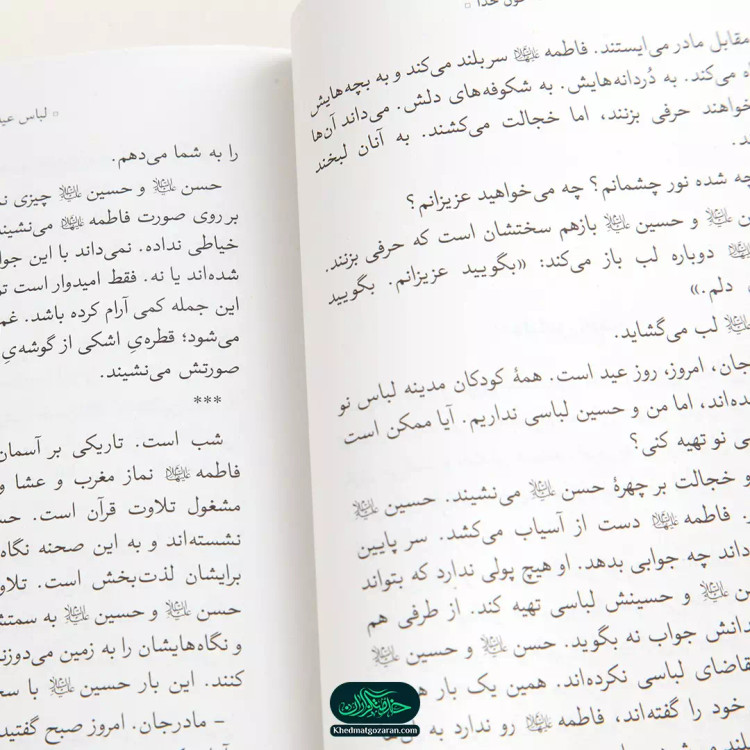 خون خدا
مقابل مادر می‌ایستند. فاطمه سربلند می‌کند و به بچه‌هایش
می‌کند. به دُردانه‌هایش. به شکوفه‌های دلش. می‌داند آن‌ها
حرفی بزنند، اما خجالت می‌کشند. به آنان لبخند
چه شده نور چشمانم؟ چه می‌خواهید عزیزانم؟
و حسین بازهم سختشان است که حرفی بزنند.
دوباره لب باز می‌کند: «بگویید عزیزانم. بگویید
دلم.»
لب می‌گشاید.
امروز، روز عید است. همهٔ کودکان مدینه لباس نو
اما من و حسین لباسی نداریم. آیا ممکن است
نو تهیه کنی؟
و خجالت بر چهرهٔ حسن می‌نشیند. حسین
فاطمه دست از آسیاب می‌کشد. سر پایین
چه جوابی بدهد. او هیچ پولی ندارد که بتواند
و حسینش لباسی تهیه کند. از طرفی هم
جواب نه بگوید. حسن و حسین
لباسی نکرده‌اند. همین یک بار هم
خود را گفته‌اند، فاطمه رو ندارد به
لباس عید
را به شما می‌دهم.
حسن و حسین چیزی
بر روی صورت فاطمه
خیاطی نداده. نمی‌داند با این
شده‌اند یا نه. فقط امیدوار است
این جمله کمی آرام کرده باشد. غم
می‌شود؛ قطره‌یِ اشکی از گوشه‌یِ
صورتش می‌نشیند.
***
شب است. تاریکی بر آسمان
فاطمه نماز مغرب و عشا
مشغول تلاوت قرآن است.
نشسته‌اند و به این صحنه
برایشان لذت‌بخش است.
حسن و حسین به
و نگاه‌هایشان را به زمین
کنند. این بار حسین با
- مادرجان. امروز صبح گفتید
خدمتگزاران
Khedmatgozaran.com